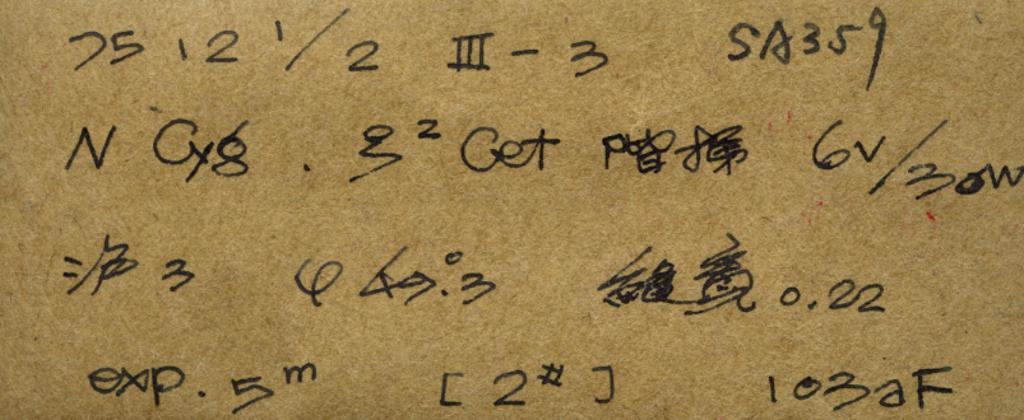 75 12 1/2 III-3 SA359
N Cyg . ξ² Cet 階梯 6V/30W
沪 3 φ 40°.3 縫寬 0.22
exp. 5ᵐ [2#] 103aF